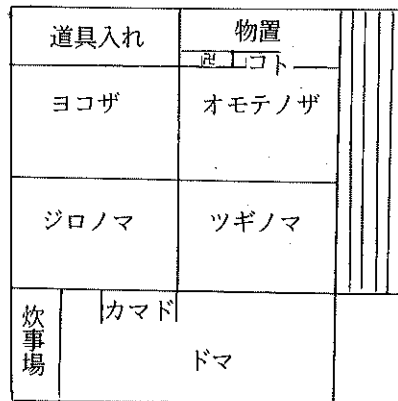 道具入れ
物置
卍
トコ
ヨコザ
オモテノザ
ジロノマ
ツギノマ
炊事場
カマド
ドマ